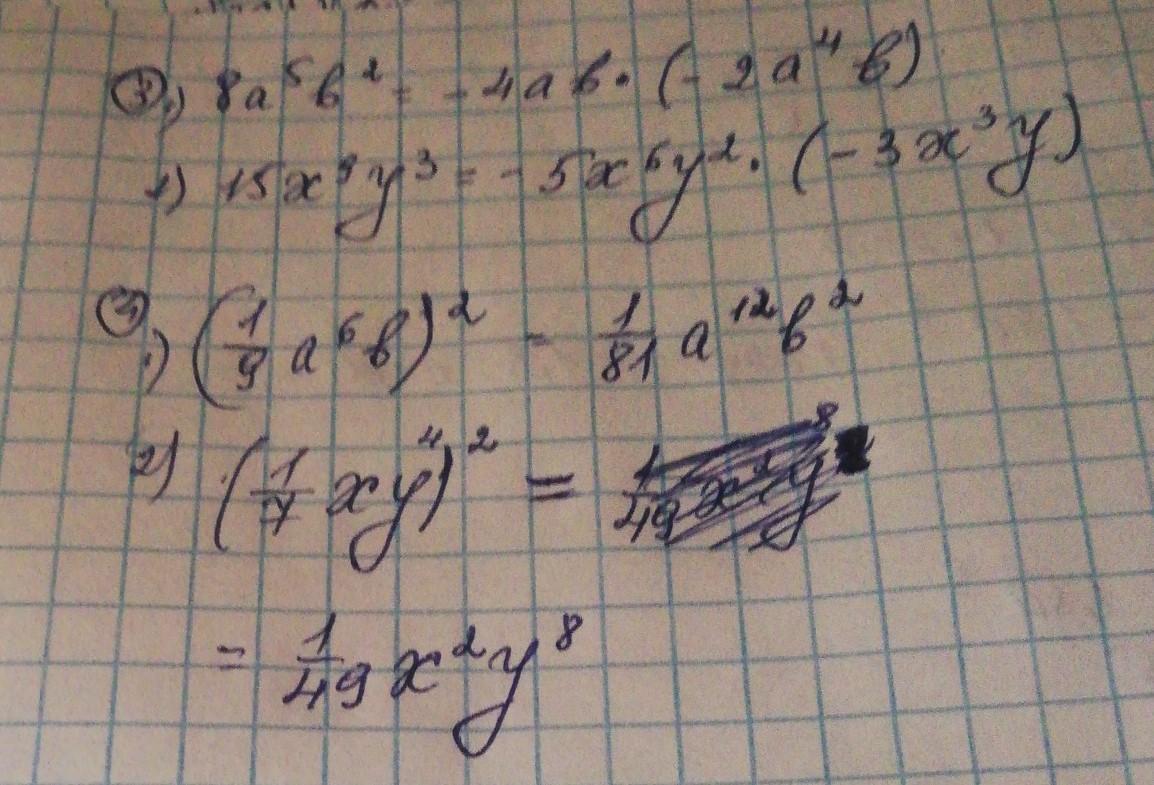 ③ 1) 8a⁵b² = -4ab · (-2a⁴b)
1) 15x⁹y³ = -5x⁶y² · (-3x³y)
1) (1/9 a⁶b)² = 1/81 a¹²b²
2) (1/7 xy⁴)² =
= 1/49 x²y⁸